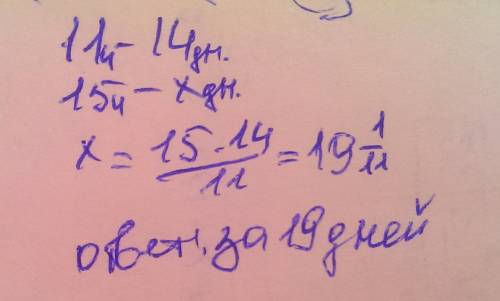 11ч - 14дн.
15ч - x дн.
x = 15·14/11 = 19 1/11
ответ. за 19 дней